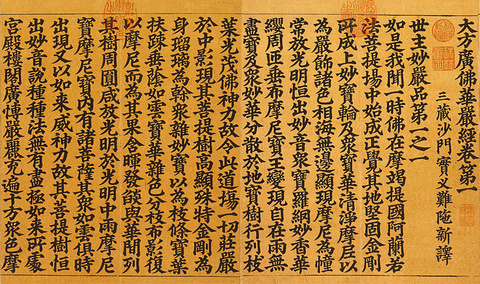 大方廣佛華嚴經卷第一
三藏沙門實叉難陁新譯
世主妙嚴品第一之一
如是我聞一時佛在摩竭提國阿蘭若
法菩提場中始成正覺其地堅固金剛
所成上妙寶輪及衆寶華清淨摩尼以
為嚴飾諸色相海無邊顯現摩尼為幢
常放光明恒出妙音衆寶羅網妙香華
纓周匝垂布摩尼寶王變現自在雨無
盡寶及衆妙華分散於地寶樹行列枝
葉光茂佛神力故令此道場一切莊嚴
於中影現其菩提樹高顯殊特金剛為
身瑠璃為幹衆雜妙寶以為枝條寶葉
扶踈垂蔭如雲寶華雜色分枝布影復
以摩尼而為其果含暉發焰與華間列
其樹周圓咸放光明於光明中雨摩尼
寶摩尼寶內有諸菩薩其衆如雲俱時
出現又以如来威神力故其菩提樹恒
出妙音說種種法無有盡極如来所處
宮殿樓閣廣博嚴麗充遍十方衆色摩